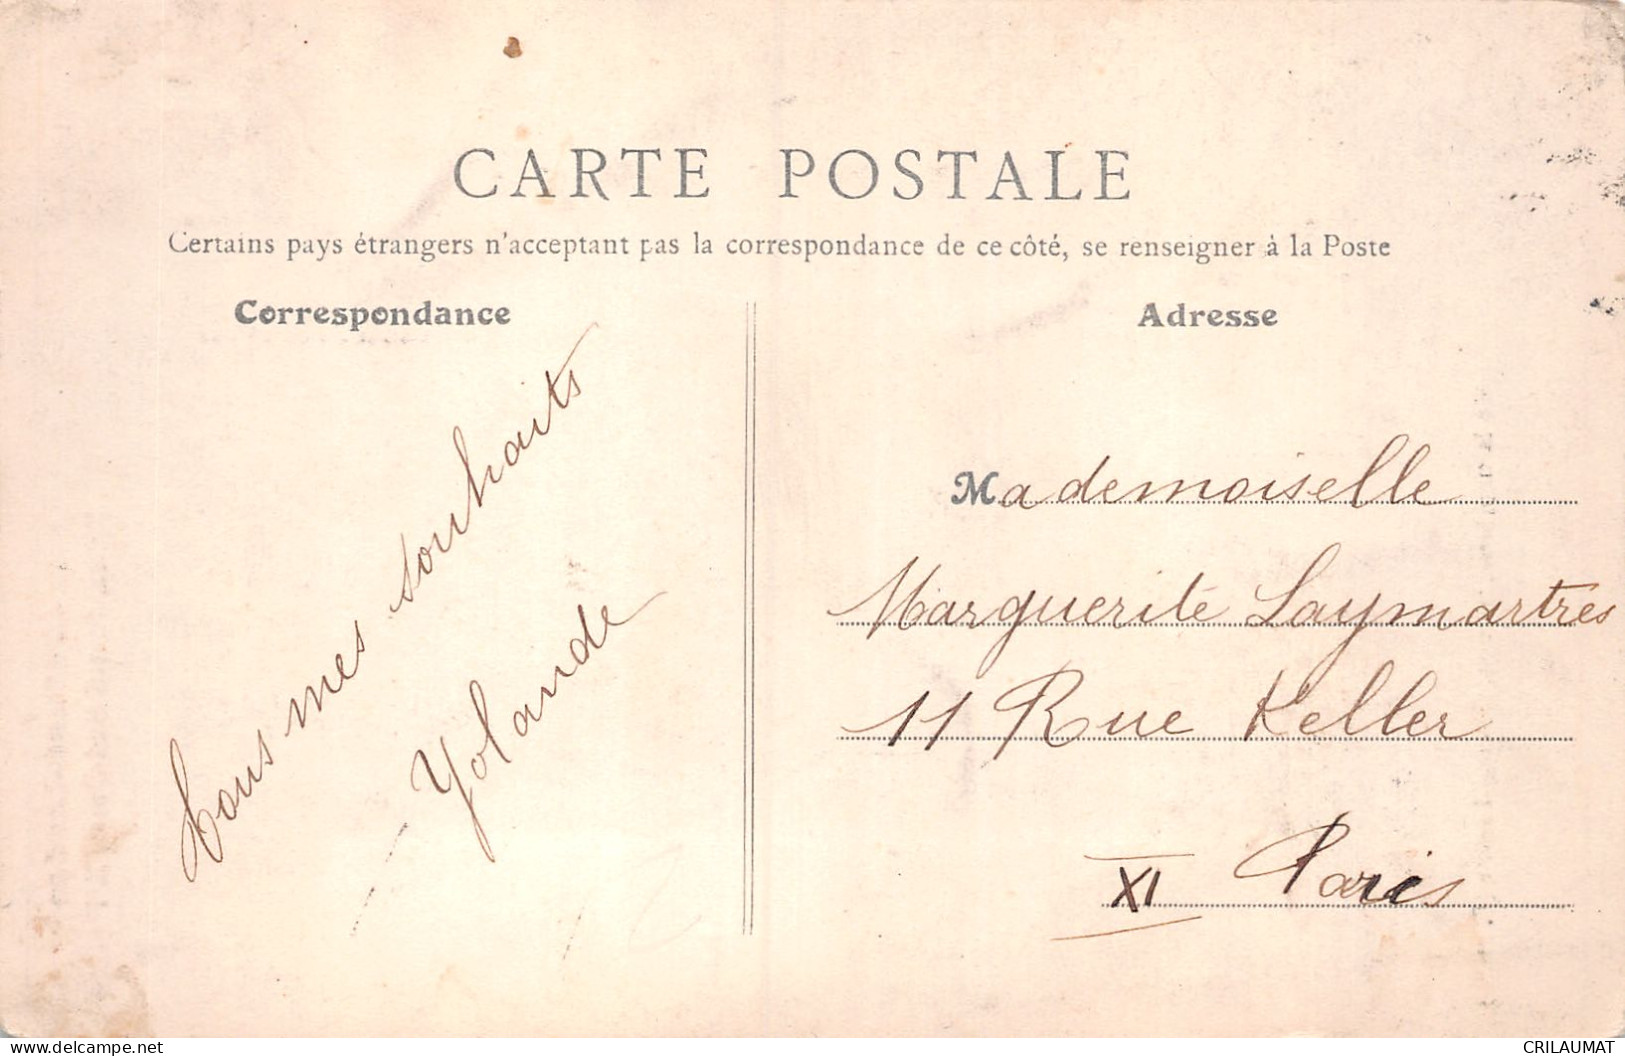 CARTE POSTALE
Certains pays étrangers n'acceptant pas la correspondance de ce côté, se renseigner à la Poste
Correspondance
Tous mes souhaits
Yolande
Adresse
Mademoiselle
Marguerite Laymartres
11 Rue Keller
XI Paris
delcampe.net
CRILAUMAT